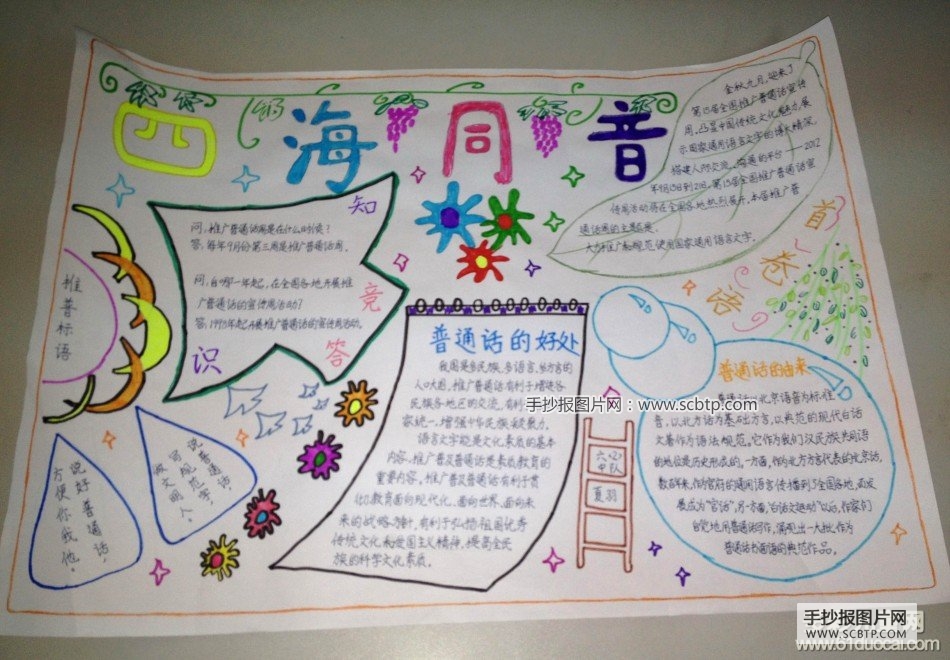 四海同音
金秋九月，迎来了
第15届全国推广普通话宣传
周，凸显中国传统文化魅力，展
示国家通用语言文字的博大精深，
搭建人际交流、沟通的平台——2012
年9月15日到21日，第15届全国推广普通话宣
传周活动将在全国各地热烈展开，本届推广普
通话周的主题是：
大力推广和规范使用国家通用语言文字。
首卷语
知识竞答
问：推广普通话周是在什么时候？
答：每年9月份第三周是推广普通话周。
问：自哪一年起，在全国各地开展推
广普通话的宣传周活动？
答：1998年起开展推广普通话的宣传周活动。
推普标语
说好普通话，
方便你我他。
说普通话，
写规范字，
做文明人。
普通话的好处
我国是多民族、多语言、多方言的
人口大国，推广普通话有利于增进各
民族各地区的交流，有利
家统一，增强中华民族凝聚力。
语言文字能力是文化素质的基本
内容，推广普及普通话是素质教育的
重要内容，推广普及普通话有利于贯
彻教育面向现代化、面向世界、面向未
来的战略方针，有利于弘扬祖国优秀
传统文化和爱国主义精神，提高全民
族的科学文化素质。
六(2)
中队
夏羽
普通话的由来
普通话以北京语音为标准
音，以北方话为基础方言，以典范的现代白话
文著作为语法规范。它作为我们汉民族共同语
的地位是历史形成的。一方面，作为北方方言代表的北京话，
数百年来，作为官府的通用语言传播到了全国各地，而发
展成为“官话”，另一方面，“白话文运动”以后，作家们
自觉地用普通话写作，涌现出一大批作为
普通话书面语的典范作品。
手抄报图片网：www.scbtp.com
手抄报图片网
WWW.SCBTP.COM
www.61duocai.com